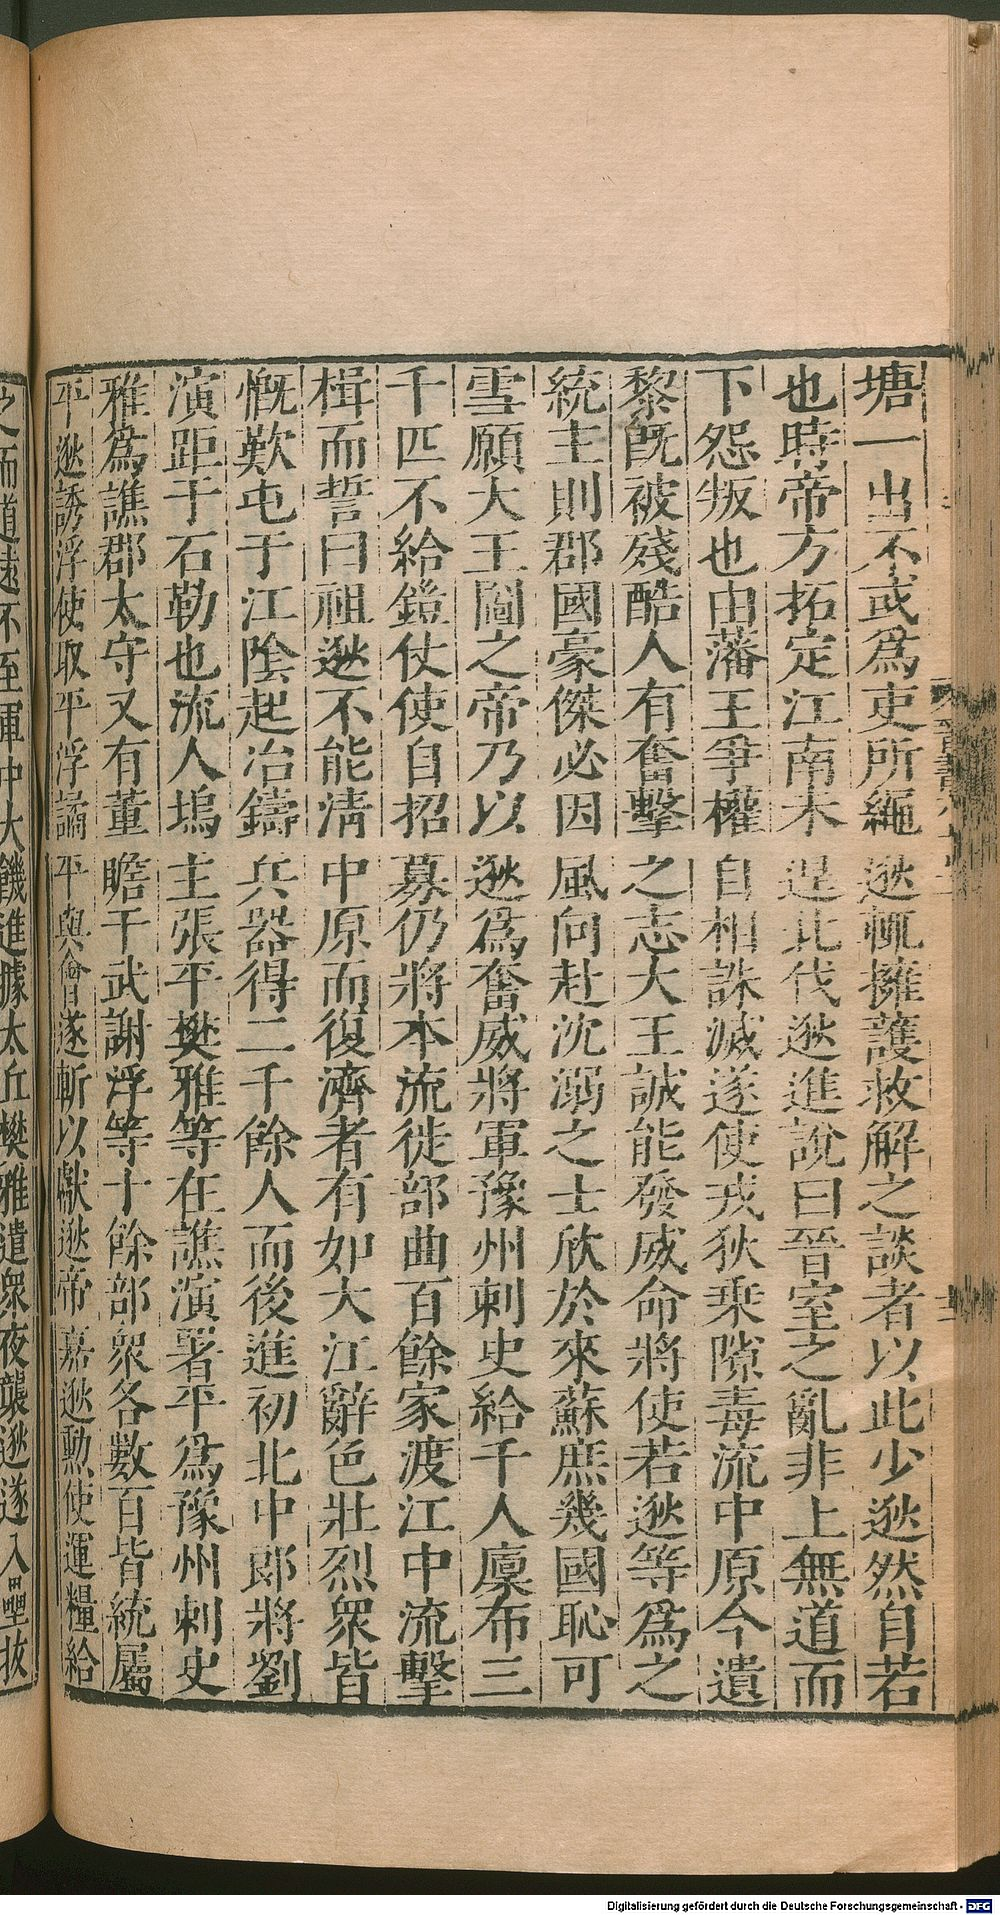 塘一出不或爲吏所繩逖輒擁護救解之談者以此少逖然自若
也時帝方拓定江南未遑北伐逖進說曰晉室之亂非上無道而
下怨叛也由藩王爭權自相誅滅遂使戎狄乗隙毒流中原今遺
黎旣被殘酷人有奮擊之志大王誠能發威命將使若逖等爲之
統主則郡國豪傑必因風向赴沈溺之士欣於來蘇庶幾國恥可
雪願大王圖之帝乃以逖爲奮威將軍豫州刺史給千人廩布三
千匹不給鎧仗使自招募仍將本流徙部曲百餘家渡江中流擊
楫而誓曰祖逖不能清中原而復濟者有如大江辭色壯烈衆皆
慨歎屯于江陰起冶鑄兵器得二千餘人而後進初北中郎將劉
演距于石勒也流人塢主張平樊雅等在譙演署平爲豫州刺史
雅爲譙郡太守又有董瞻于武謝浮等十餘部衆各數百皆統屬
平逖誘浮使取平浮譎平與會遂斬以獻逖帝嘉逖勲使運糧給
之而道遠不至軍中大饑進據太丘樊雅遣衆夜襲逖遂入壘拔
Digitalisierung gefördert durch die Deutsche Forschungsgemeinschaft - DFG